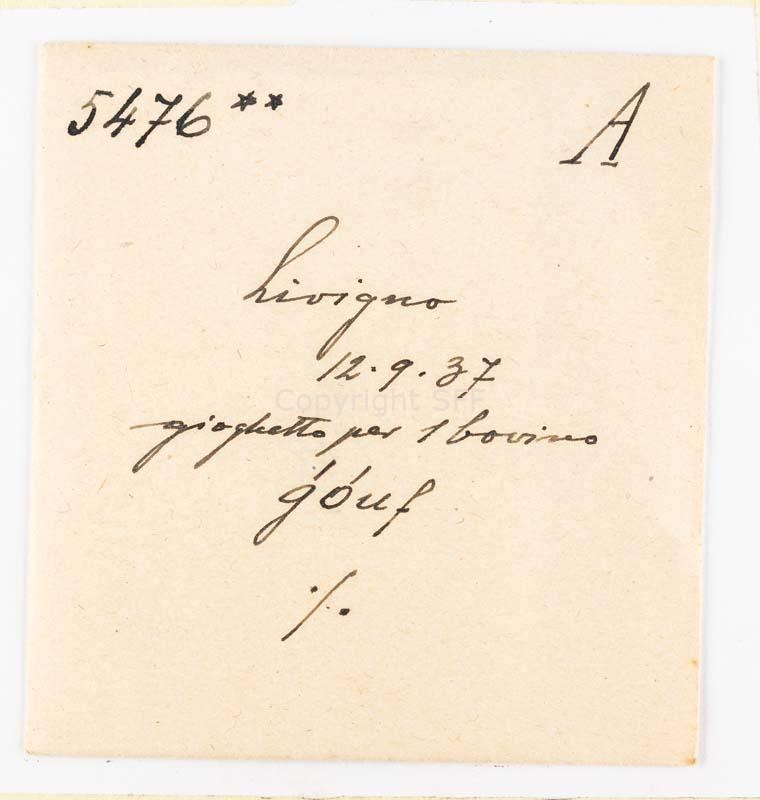 5476** A
Livigno
12.9.37
gioghetto per 1 bovino
ǵóuf
./.
Copyright SFF